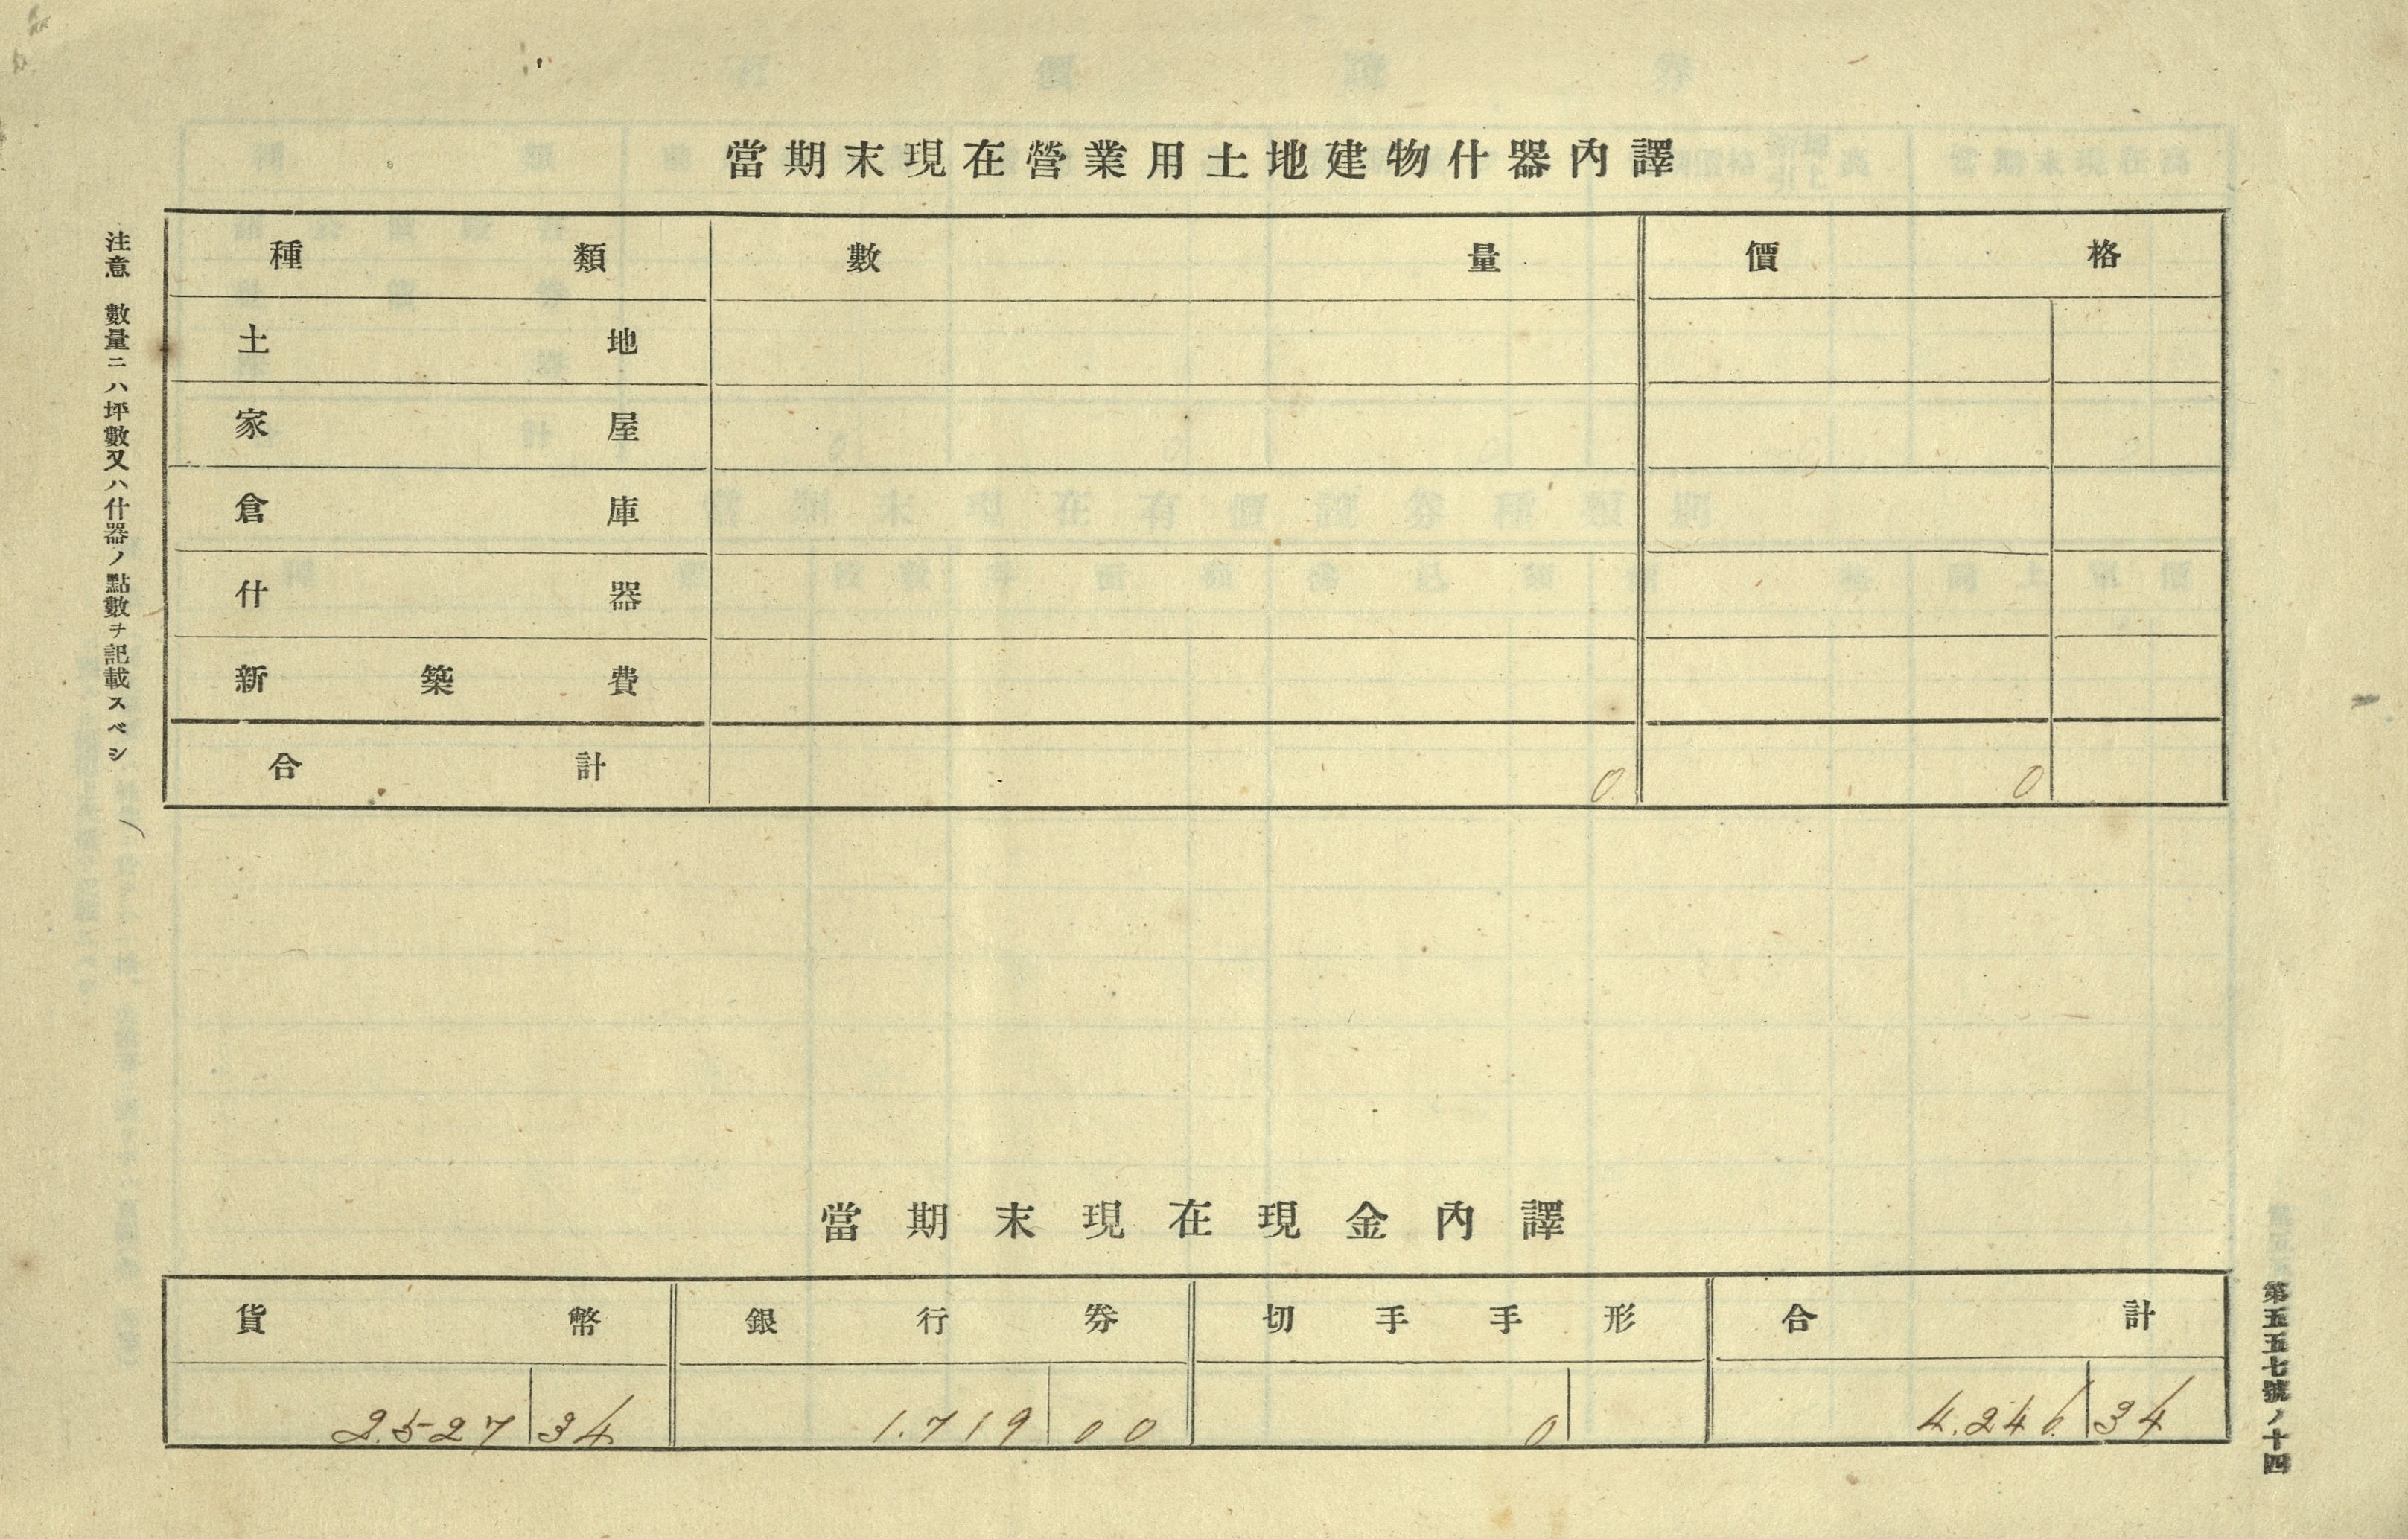 當期末現在營業用土地建物什器內譯
種類 數量 價格
土地
家屋
倉庫
什器
新築費
合計 0 0
注意 數量ニハ坪數又ハ什器ノ點數ヲ記載スベシ
當期末現在現金內譯
貨幣 銀行券 切手手形 合計
2.527 34 1.719 00 0 4.246 34
第五五七號ノ十四